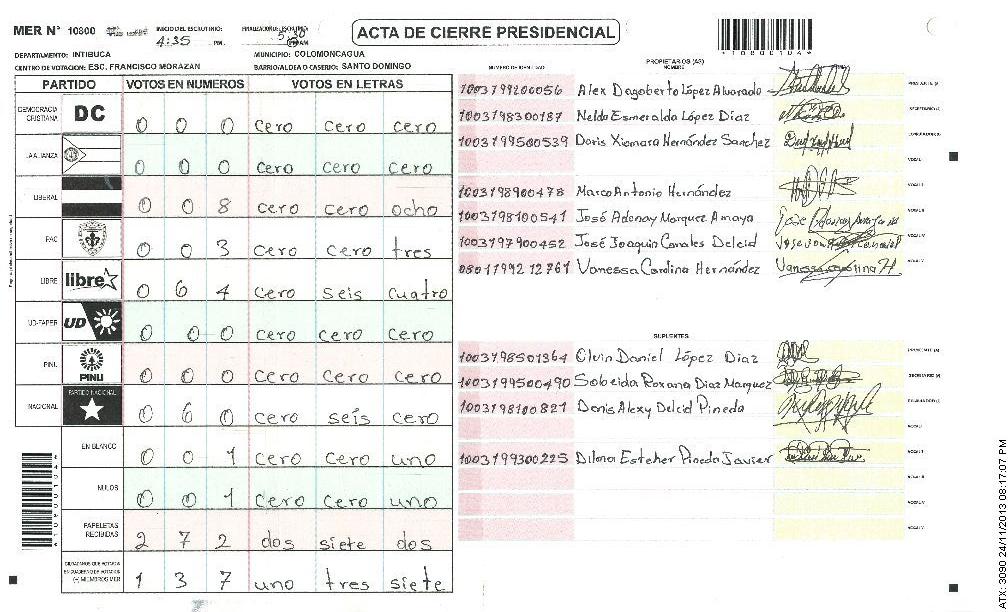 MER N° 10800 INICIO DEL ESCRUTINIO: 4:35 PM. FINALIZACION ESCRUTINIO: 5:30 PM
ACTA DE CIERRE PRESIDENCIAL
*10800104*
DEPARTAMENTO: INTIBUCA MUNICIPIO: COLOMONCAGUA
CENTRO DE VOTACION: ESC. FRANCISCO MORAZAN BARRIO/ALDEA O CASERIO: SANTO DOMINGO
PARTIDO VOTOS EN NUMEROS VOTOS EN LETRAS
DEMOCRACIA CRISTIANA DC 0 0 0 cero cero cero
LA ALIANZA 0 0 0 cero cero cero
LIBERAL 0 0 8 cero cero ocho
PAC 0 0 3 cero cero tres
LIBRE libre 0 6 4 cero seis cuatro
UD-FAPER UD 0 0 0 cero cero cero
PINU PINU 0 0 0 cero cero cero
NACIONAL PARTIDO NACIONAL 0 6 0 cero seis cero
EN BLANCO 0 0 1 cero cero uno
NULOS 0 0 1 cero cero uno
PAPELETAS RECIBIDAS 2 7 2 dos siete dos
CIUDADANOS QUE VOTARON EN CUADERNO DE VOTACION (+) MIEMBROS MER 1 3 7 uno tres siete
PROPIETARIOS (AS)
NUMERO DE IDENTIDAD NOMBRE
1003199200056 Alex Dagoberto López Alvarado PRESIDENTE (A)
1003198300187 Nelda Esmeralda López Díaz SECRETARIO (A)
1003199500539 Doris Xiomara Hernández Sanchez ESCRUTADOR (A)
VOCAL I
1003198900478 Marco Antonio Hernández VOCAL II
1003198100541 José Adonay Marquez Amaya VOCAL III
1003197900452 José Joaquin Canales Delcid VOCAL IV
0801199212761 Vanessa Carolina Hernández Vanessa Carolina H VOCAL V
SUPLENTES
1003198501364 Elvin Daniel López Diaz PRESIDENTE (A)
1003199500490 Sobeida Roxana Diaz Marquez SECRETARIO (A)
1003198100821 Denis Alexy Delcid Pineda ESCRUTADOR (A)
VOCAL I
1003199300225 Dilana Esteher Pineda Javier VOCAL II
VOCAL III
VOCAL IV
VOCAL V
ATX: 3090 24/11/2013 08:17:07 PM